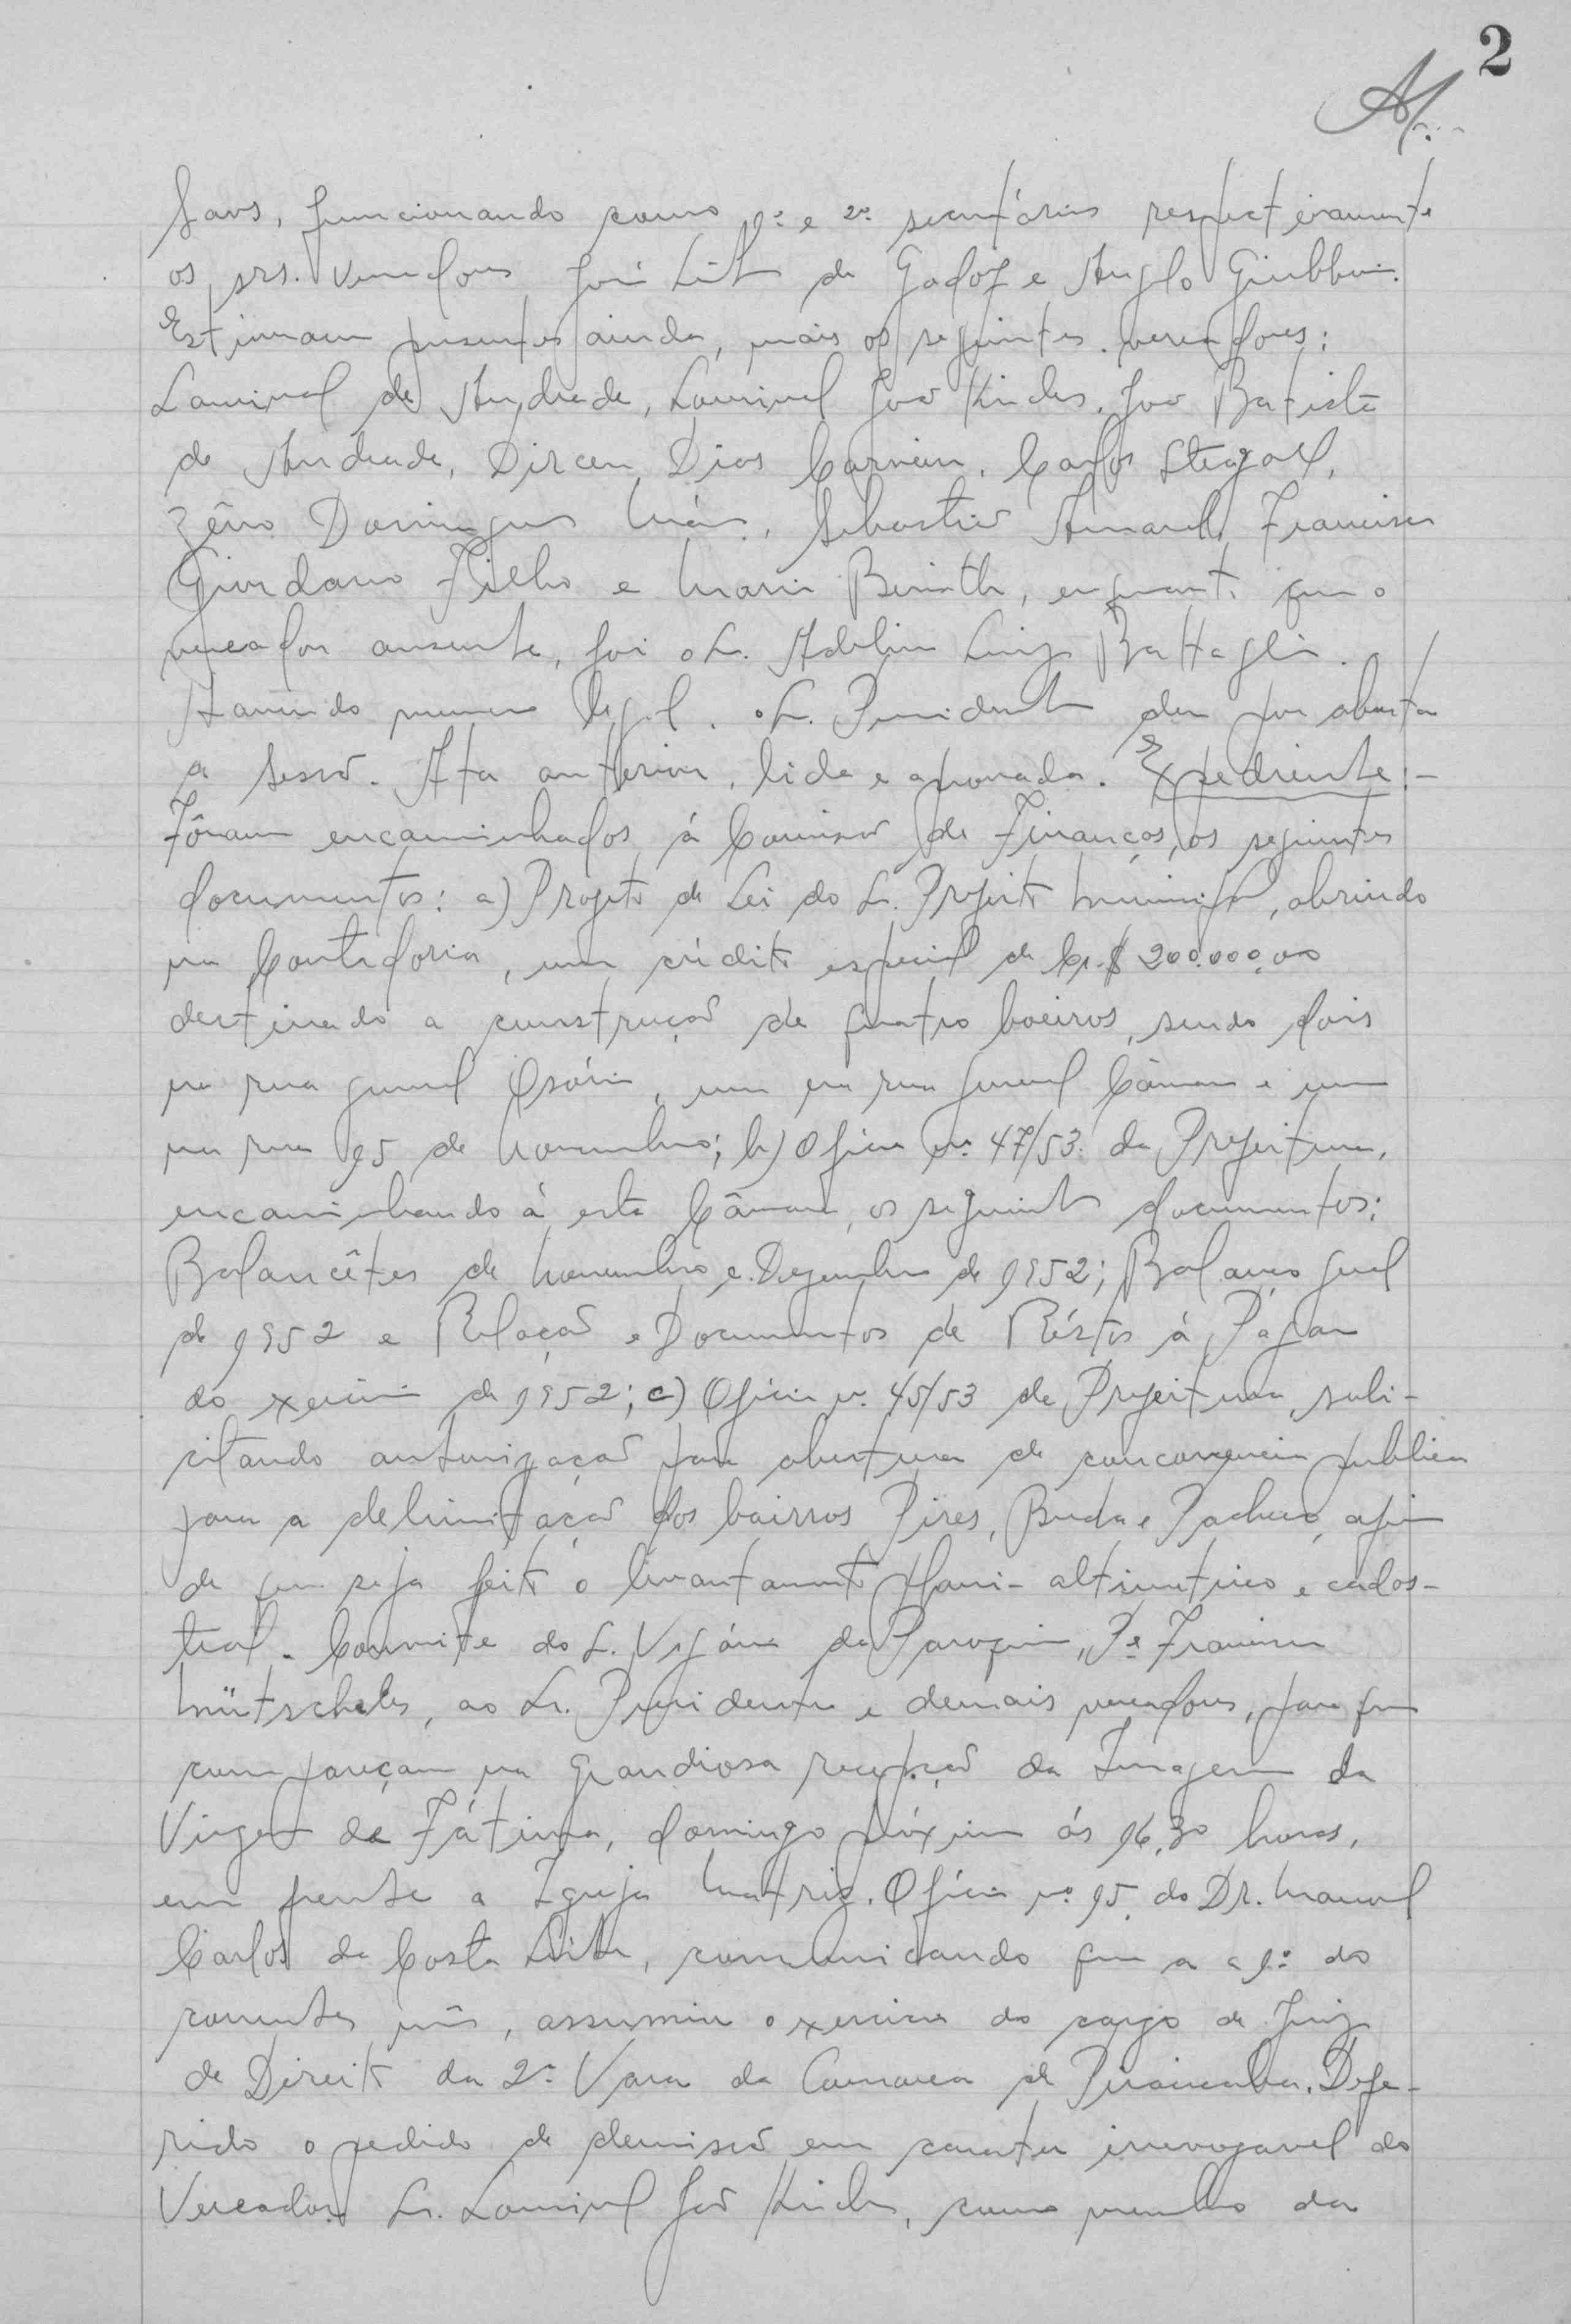 2
Savs, funcionando como 1º e 2º secretários respectivamente
os srs. Vereadores José Leite de Godoy e Angelo Giubbina.
Estiveram presentes ainda, mais os seguintes vereadores:
Lourival de Andrade, Lourival José, João Batista
de Andrade, Dirceu Dias Carneiro, Carlos Stegal,
Zêno Domingues, Sebastião Amaral, Francisco
Giordano Filho e Mario, enquanto que o
vereador ausente, foi o Sr. Adelino Luiz Battaglin.
Havendo numero legal, o Sr. Presidente deu por aberta
a Sessão. Ata anterior, lida e aprovada. Expediente:-
Fôram encaminhados á Comissão de Finanças, os seguintes
documentos: a) Projeto de Lei do Sr. Prefeito Municipal, abrindo
na Contadoria, um crédito especial de Cr.$ 200.000,00
destinado a construção de quatro boeiros, sendo dois
na rua general Osório, um na rua general Câmara e um
na rua 15 de Novembro; b) Oficio nº 47/53. da Prefeitura,
encaminhando á esta Câmara, os seguintes documentos:
Balancêtes de Novembro e Dezembro de 1952; Balanço geral
de 1952 e Relação e Documentos de Réstos á Pagar
do exercicio de 1952; c) Oficio nº 45/53 da Prefeitura, soli-
citando autorização para abertura de concorrencia publica
para a delimitação dos bairros Pires, Buda e Pacheco, afim
de que seja feito o levantamento plani-altimetrico e cadas-
tral. Convite do S. Vigário da Paroquia, Pe. Francisco
Mütschele, ao Sr. Presidente e demais vereadores, para que
compareçam na grandiosa recepção da Imagem da
Virgem de Fátima, domingo próximo ás 16,30 horas,
em frente a Igreja Matriz. Oficio nº 15, do Dr. Manoel
Carlos da Costa Leite, comunicando que a 1º do
corrente mês, assumiu o exercicio do cargo de Juiz
de Direito da 2ª Vara da Comarca de Piracicaba. Defe-
rido o pedido de demissão em carater irrevogavel do
Vereador Sr. Lourival José, como membro da